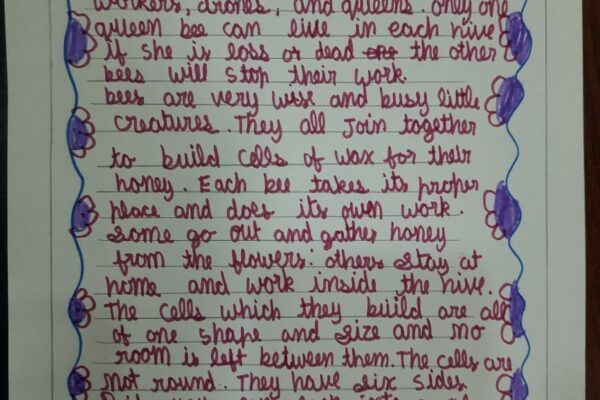 workers, drones, and queens. only one
queen bee can live in each hive
if she is loss or dead the other
bees will stop their work.
bees are very wise and busy little
creatures. They all Join together
to build cells of wax for their
honey. Each bee takes its proper
place and does its own work.
some go out and gather honey
from the flowers: others stay at
home and work inside the hive.
The cells which they build are all
of one shape and size and no
room is left between them. The cells are
not round. They have six sides.